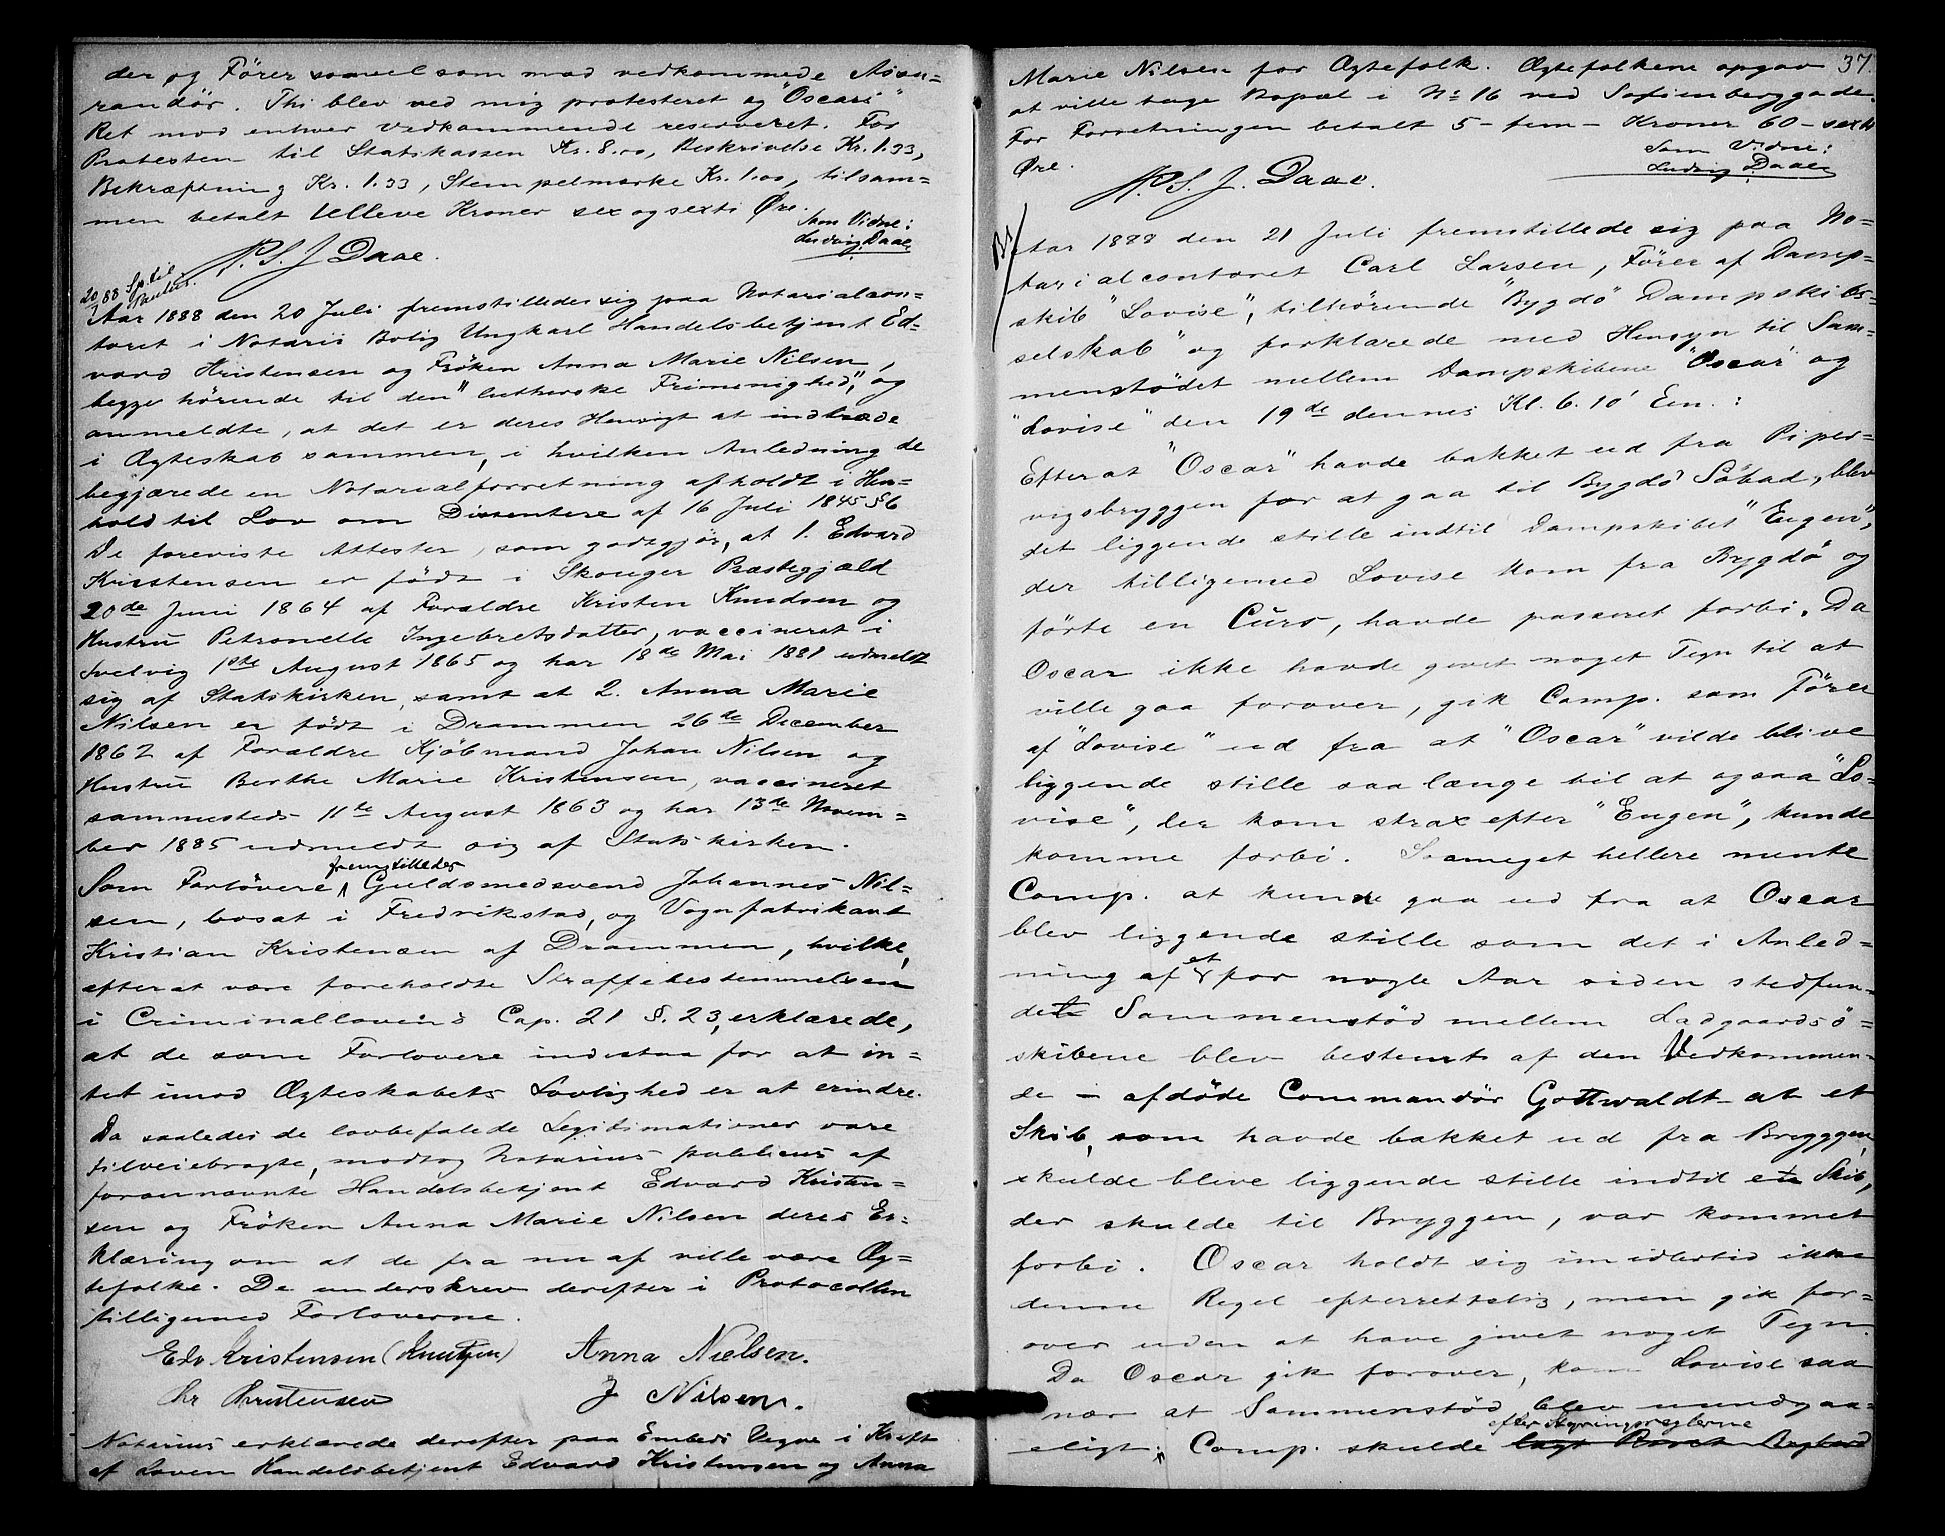 der og Fører saavel som mod vedkommende Assu=
randør. Thi blev ved mig protesteret og "Oscars"
Ret mod enhver Vedkommende reserveret. For
Protesten til Statskassen Kr. 8.00, Beskrivelse Kr. 1.33,
Bekræftning Kr. 1.33, Stempelmærke Kr. 1.00, tilsam=
men betalt Elleve Kroner sex og sexti Øre.
Som Vidne:
Ludvig Daae
P.S.J Daae.
20/7 88 Sp. til
Aar 1888 den 20 Juli fremstillede sig paa Notarialcon=
toret i Notarii Bolig Ungkarl Handelsbetjent Ed=
vard Kristensen og Frøken Anna Marie Nilsen,
begge hørende til den "lutherske Frimenighed", og
anmeldte, at det er deres Hensigt at indtræde
i Ægteskab sammen, i hvilken Anledning de
begjærede en Notarialforretning afholdt i Hen=
hold til Lov om Dissentere af 16 Juli 1845 § 6
De foreviste Attester, som godtgjør, at 1. Edvard
Kristensen er født i Skouger Præstegjæld
20de Juni 1864 af Forældre Kristen Knudsen og
Hustru Petronelle Ingebretsdatter, vaccineret i
Svelvig 1ste August 1865 og har 18de Mai 1881 udmeldt
sig af Statskirken, samt at 2. Anna Marie
Nilsen er født i Drammen 26de December
1862 af Forældre Kjøbmand Johan Nilsen og
Hustru Berthe Marie Kristensen, vaccineret
sammesteds 11te August 1863 og har 13de Novem=
ber 1885 udmeldt sig af Statskirken.
fremstilledes
Som Forlovere Guldsmedsvend Johannes Nil=
sen, bosat i Fredrikstad, og Vognfabrikant
Kristian Kristensen af Drammen, hvilke,
efterat være foreholdte Straffebestemmelsen
i Criminallovens Cap. 21 §. 23, erklærede,
at de som Forlovere indestaa for at in=
tet imod Ægteskabets Lovlighed er at erindre.
Da saaledes de lovbefalede Legitimationer vare
tilveiebragte, modtog Notarius publicus af
forannævnte Handelsbetjent Edvard Kristen=
sen og Frøken Anna Marie Nilsen deres Er=
klæring om at de fra nu af ville være Æg=
tefolke. De underskrev derefter i Protocollen
tilligemed Forloverne.
Edv Kristensen (Knutsen) Anna Nielsen.
Chr Christensen J Nilsen.
Notarius erklærede derefter paa Embeds Vegne i Kraft
af Loven Handelsbetjent Edvard Kristensen og Anna
37.
Marie Nilsen for Ægtefolk. Ægtefolkene opgav
at ville tage Bopæl i No 16 ved Sofienberggade.
For Forretningen betalt 5 - fem - Kroner 60 - sexti
Øre.
Som Vidne:
Ludvig Daae
P.S.J. Daae.
Aar 1888 den 21 Juli fremstillede sig paa No=
tarialcontoret Carl Larsen, Fører af Damp=
skib "Lovise", tilhørende "Bygdø Dampskibs=
selskab" og forklarede med Hensyn til Sam=
menstødet mellem Dampskibene "Oscar" og
"Lovise" den 19de dennes Kl. 6.10' Em.:
Efterat "Oscar" havde bakket ud fra Piper=
vigsbryggen for at gaa til Bygdø Søbad, blev
det liggende stille indtil Dampskibet "Eugen",
der tilligemed Lovise kom fra Bygdø og
førte en Curs, havde passeret forbi. Da
Oscar ikke havde givet noget Tegn til at
ville gaa forover, gik Comp. som Fører
af "Lovise" ud fra at "Oscar" vilde blive
liggende stille saa længe til at ogsaa "Lo=
vise", der kom strax efter "Eugen", kunde
komme forbi. Saameget hellere mente
Comp. at kunde gaa ud fra at Oscar
blev liggende stille som det i Anled=
ning af et for nogle Aar siden stedfun=
det Sammenstød mellem Ladgaardsø=
skibene blev bestemt af den Vedkommen=
de - afdøde Commandør Gottwaldt - at et
Skib, som havde bakket ud fra Bryggen,
skulde blive liggende stille indtil et Skib,
der skulde til Bryggen, var kommet
forbi. Oscar holdt sig imidlertid ikke
denne Regel efterrettelig, men gik for=
over uden at have givet noget Tegn.
Da Oscar gik forover, kom Lovise saa
nær at Sammenstød blev uundgaa=
efter Styringsreglerne
eligt; Comp. skulde lagt Roret Bagbord